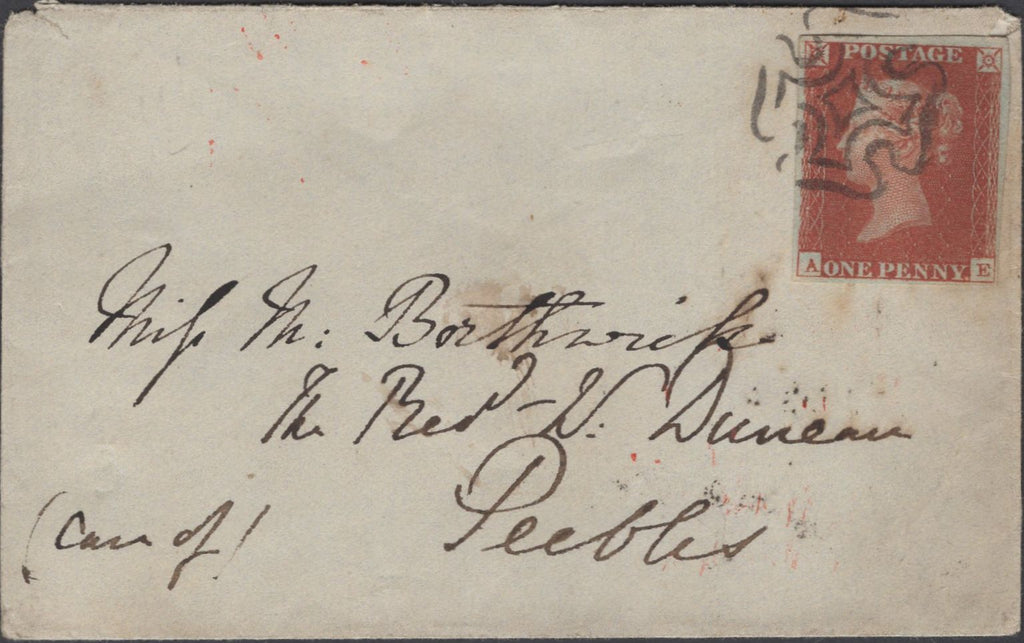 POSTAGE
A ONE PENNY. E
Miss M: Borthwick
The Revd W. Duncan
(care of) Peebles